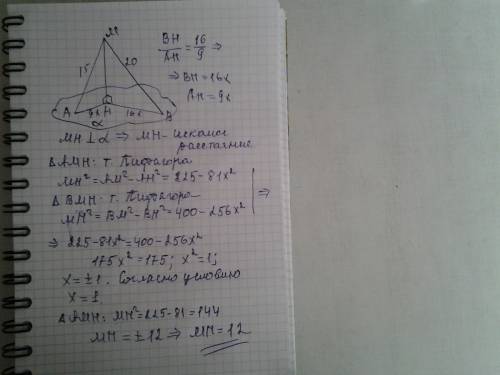 M
BH/AH = 16/9 ⇒
15
20
⇒ BH = 16x
AH = 9x
A 9x H 16x B
α
MH ⊥ α ⇒ MH - искомое
расстояние
Δ AMH: т. Пифагора
MH² = AM² - AH² = 225 - 81x²
Δ BMH: т. Пифагора
MH² = BM² - BH² = 400 - 256x²
⇒
⇒ 225 - 81x² = 400 - 256x²
175x² = 175; x² = 1;
x = ± 1. Согласно условию
x = 1.
Δ AMH: MH² = 225 - 81 = 144
MH = ± 12 ⇒ MH = 12